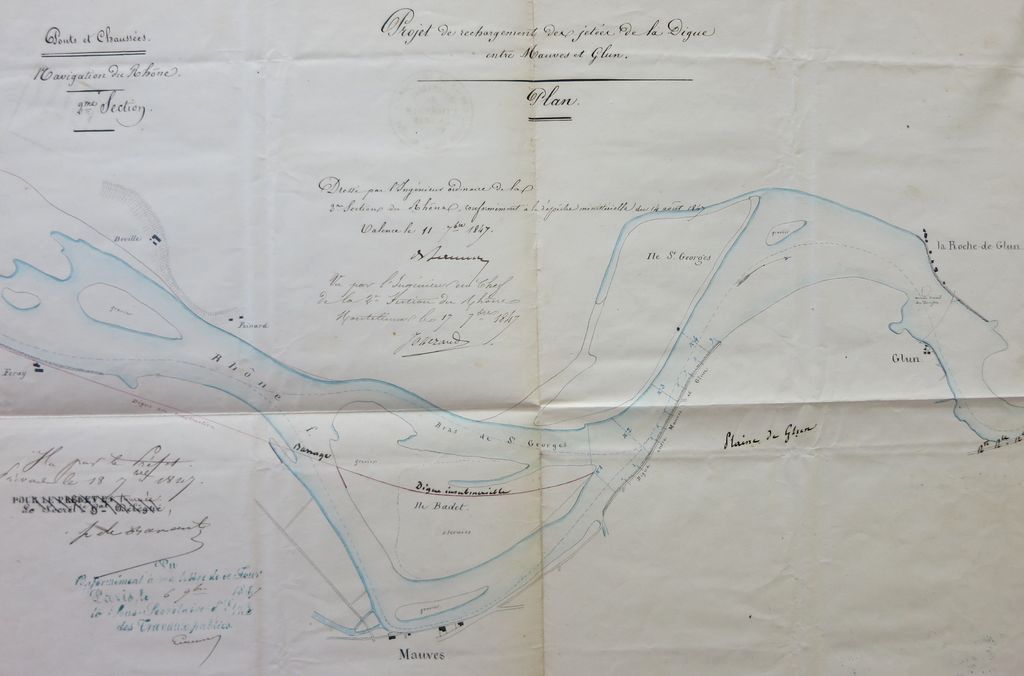 Ponts et Chaussées.
Navigation du Rhône.
2me Section.
Projet de rechargement des jetées de la Digue
entre Mauves et Glun.
Plan.
Dressé par l'Ingénieur ordinaire de la
2e Section du Rhône, conformément à la dépêche ministérielle du 14 août 1847
Valence le 11 7bre 1847.
Vu par l'Ingénieur en Chef
de la 2e Section du Rhône
Montélimar le 17 7bre 1847
Ile St Georges
gravier
la Roche-de-Glun
Glun
Plaine de Glun
Deville
gravier
Painard
Feray
Rhône
Bras de St Georges
Digue en construction
Barrage
gravier
Digue insubmersible
Ile Badet
gravier
Mauves
Digue entre Mauves et Glun
N°1
N°2
N°3
N°4
Vu par le Préfet
le 18 7bre 1847.
POUR LE PREFET
Vu
Conformément à ma lettre de ce Jour
Paris, le 6 9bre 1847
le Sous-Secrétaire d'Etat
des Travaux publics.